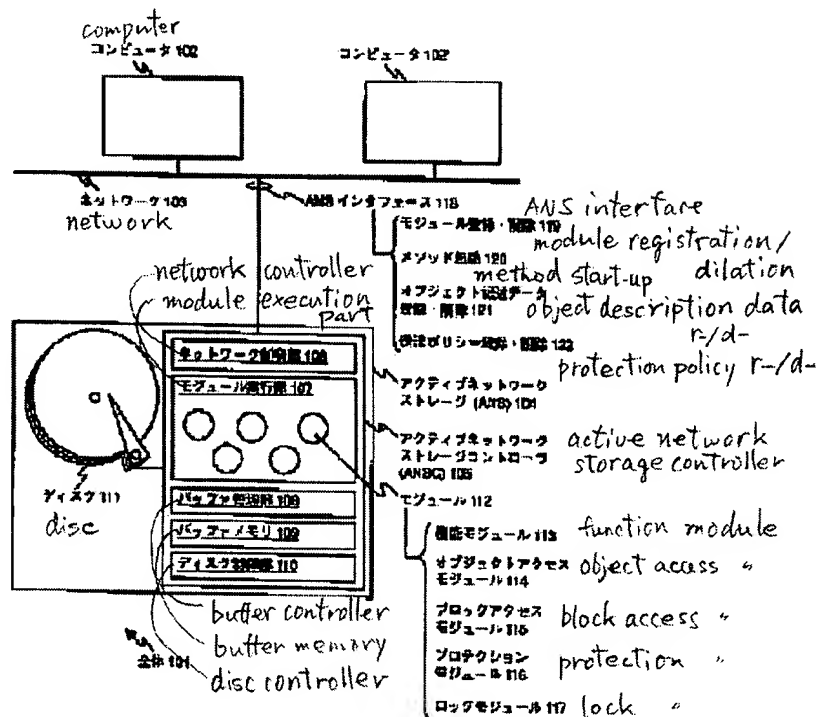 computer
コンピュータ 102
コンピュータ 102'
ネットワーク 103
network
ANSインタフェース 118
ANS interface
モジュール登録・削除 119
module registration/
dilation
メソッド起動 120
method start-up
オブジェクト記述データ
登録・削除 121
object description data
r-/d-
保護ポリシー登録・削除 122
protection policy r-/d-
network controller
module execution
part
ネットワーク制御部 106
モジュール実行部 107
アクティブネットワーク
ストレージ (ANS) 104
アクティブネットワーク
ストレージコントローラ
(ANSC) 105
active network
storage controller
ディスク 111
disc
モジュール 112
バッファ管理部 108
バッファメモリ 109
ディスク制御部 110
buffer controller
buffer memory
disc controller
全体 101
機能モジュール 113
function module
オブジェクトアクセス
モジュール 114
object access 〃
ブロックアクセス
モジュール 115
block access 〃
プロテクション
モジュール 116
protection 〃
ロックモジュール 117
lock 〃